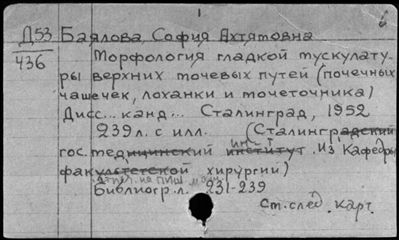 Д53 Баялова, София Ахтямовна
436 Морфология гладкой мускулату-
ры верхних мочевых путей (почечных
чашечек, лоханки и мочеточника)
Дисс... канд... Сталинград, 1952
239 л. с илл. (Сталинградский
гос. медицинский институт. Из Кафедры
факультетской хирургии)
Отпеч. на пиш. маш.
Библиогр. л. 231-239
Ст. след. карт.